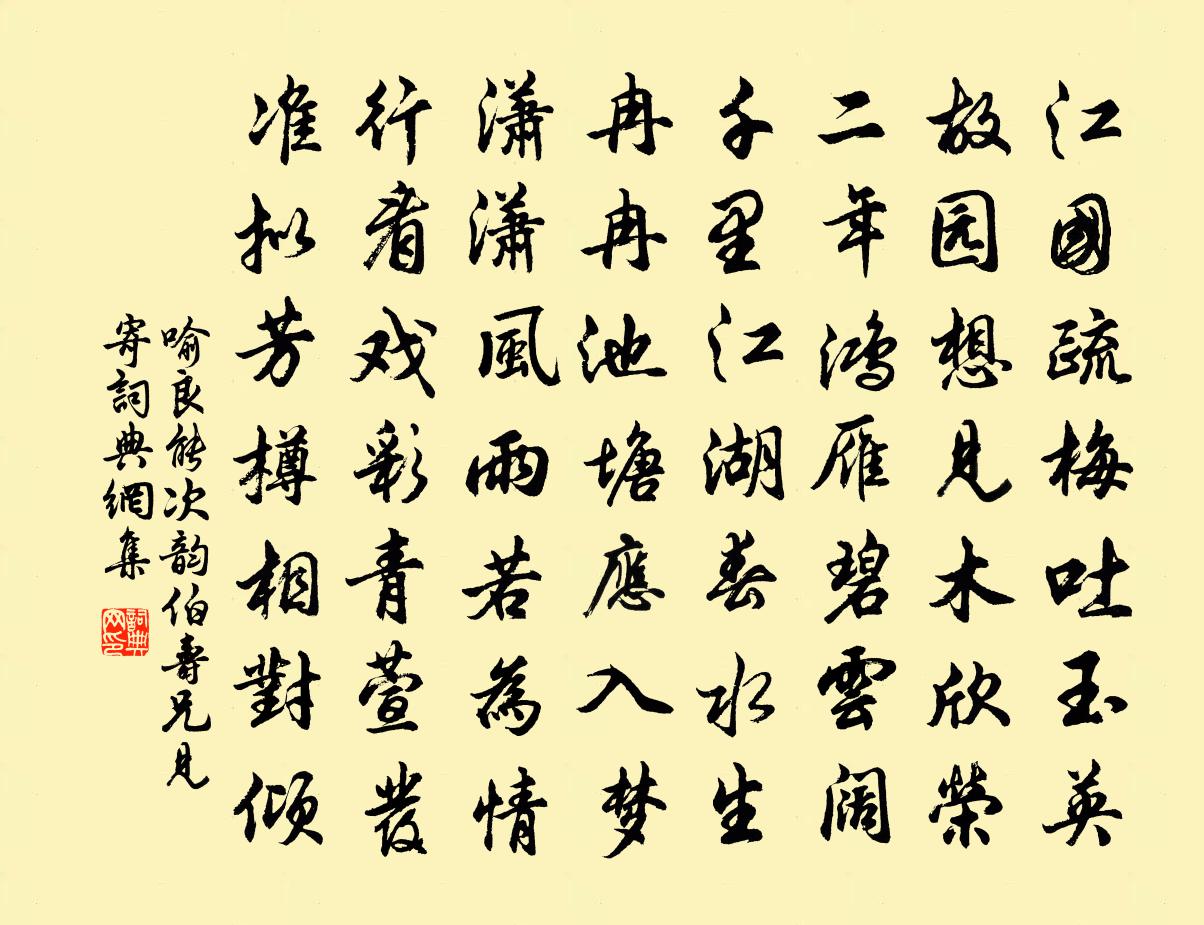 江國疏梅吐玉英
故园想見木欣榮
二年鴻雁碧雲阔
千里江湖春水生
冉冉池塘應入梦
瀟瀟風雨若為情
行看戏彩青萱發
准拟芳樽相對傾
喻良能次韵伯壽兄見
寄詞典網集
詞典网印